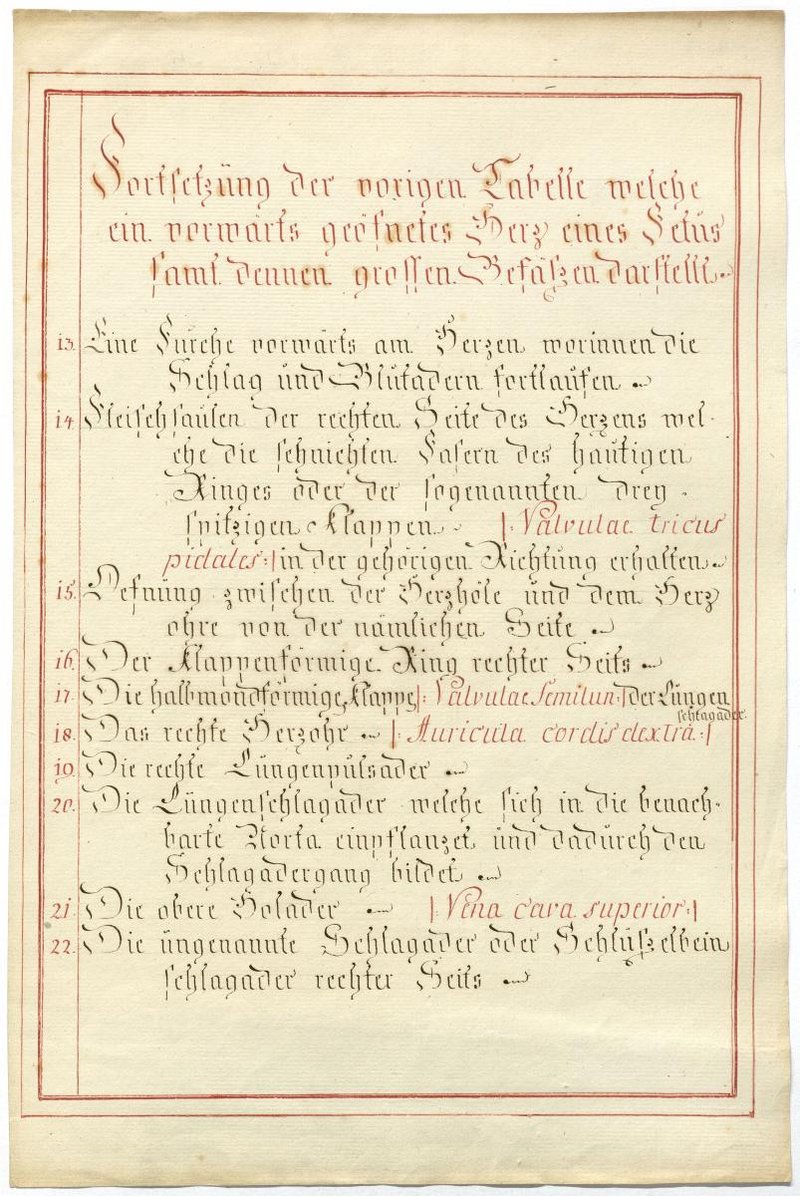 Fortsetzung der vorigen Tabelle welche
ein vorwärts geöfnetes Herz eines Fetus
samt dennen grossen Gefäszen darstellt.
13. Eine Furche vorwärts am Herzen worinnen die
Schlag und Blutadern fortlaufen.
14. Fleischsaulen der rechten Seite des Herzens wel-
che die sehnichten Fasern des hautigen
Ringes oder der sogenannten drey-
spitzigen Klappen |: Valvulae tricus
pidales :| in der gehörigen Richtung erhalten.
15. Oefnung zwischen der Herzhöle und dem Herz
ohre von der nämlichen Seite.
16. Der Klappenförmige Ring rechter Seits.
17. Die halbmondförmige Klappe |: Valvulae Semilun :| der Lungen
schlagader.
18. Das rechte Herzohr. |: Auricula cordis dextra :|
19. Die rechte Lungenpulsader.
20. Die Lungenschlagader welche sich in die benach-
barte Aorta einpflanzet und dadurch den
Schlagadergang bildet.
21. Die obere Holader. |: Vena cava superior :|
22. Die ungenannte Schlagader oder Schlüszelbein
schlagader rechter Seits.